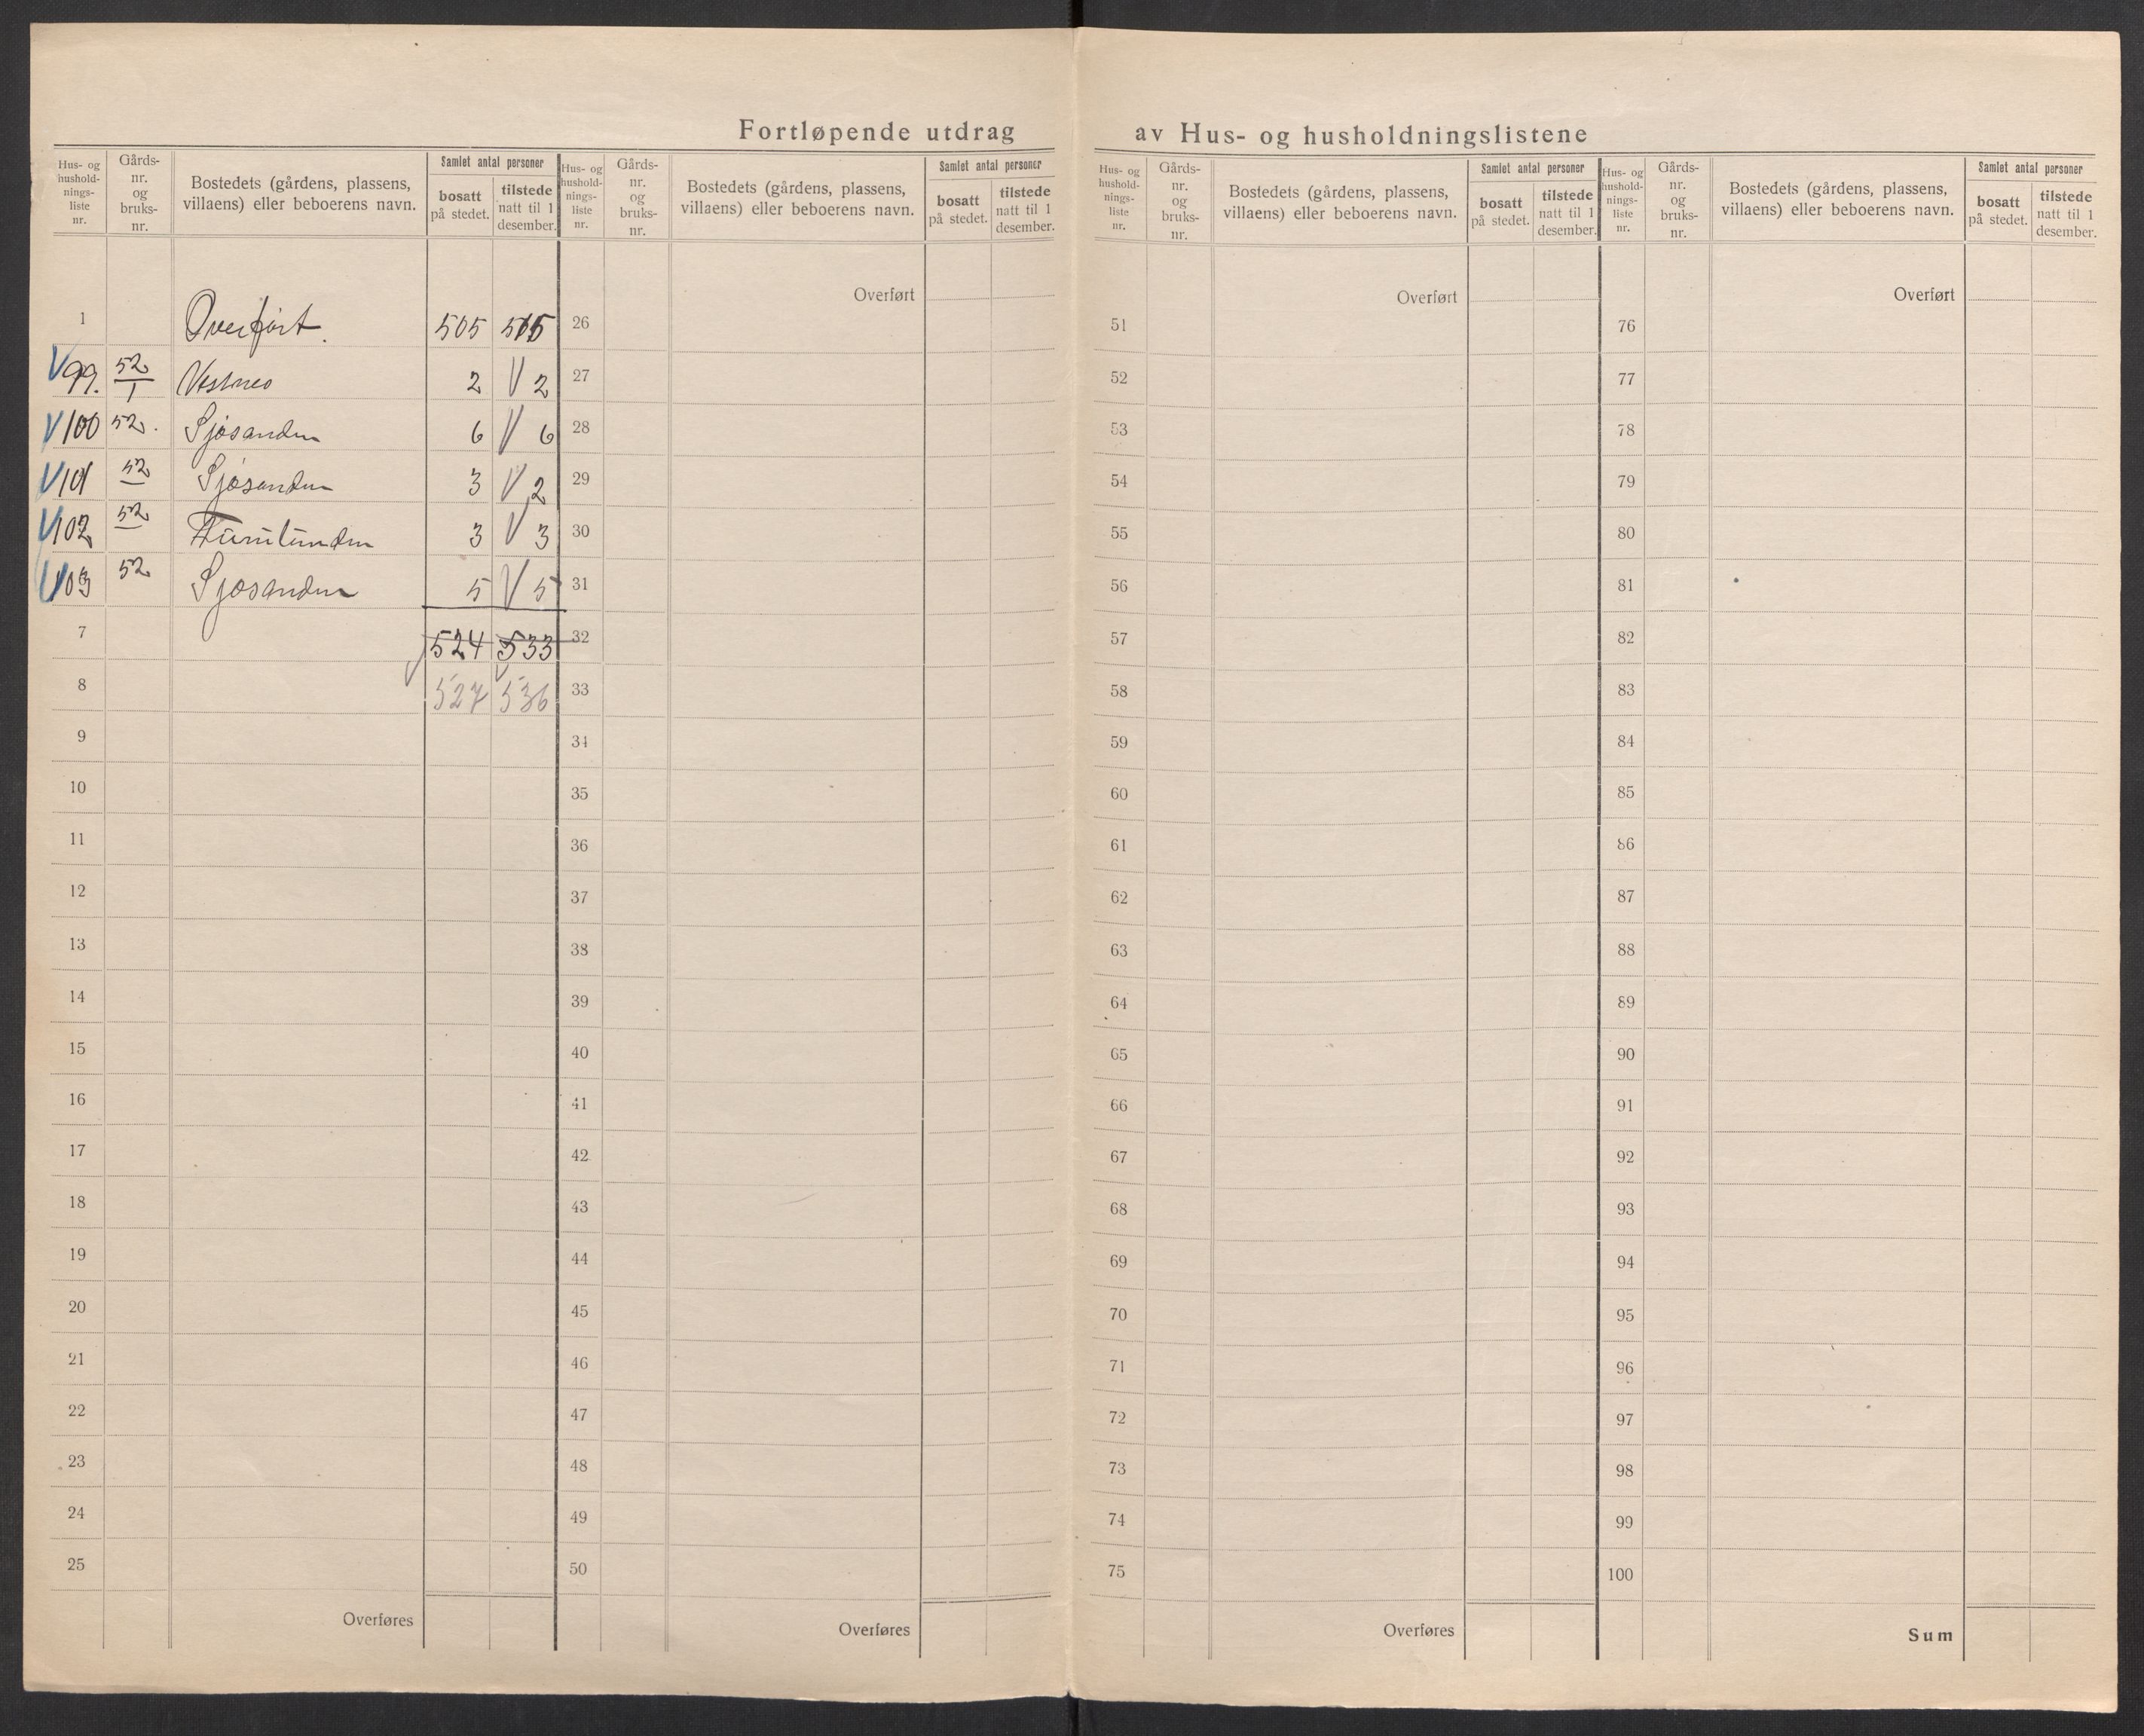 Fortløpende utdrag av Hus- og husholdningslistene
Hus- og hushold- nings- liste nr.
Gårds- nr. og bruks- nr.
Bostedets (gårdens, plassens, villaens) eller beboerens navn.
Samlet antal personer
bosatt på stedet.
tilstede natt til 1 desember.
1 Overført. 505 515
V 99. 52/1 Vestnes 2 V 2
V 100 52. Sjøsanden 6 V 6
V 101 52 Sjøsanden 3 V 2
V 102 52 Furulunden 3 V 3
V 103 52 Sjøsanden 5 V 5
7 524 533
8 527 536
9
10
11
12
13
14
15
16
17
18
19
20
21
22
23
24
25
Overføres
Hus- og hushold- nings- liste nr.
Gårds- nr. og bruks- nr.
Bostedets (gårdens, plassens, villaens) eller beboerens navn.
Samlet antal personer
bosatt på stedet.
tilstede natt til 1 desember.
Overført
26
27
28
29
30
31
32
33
34
35
36
37
38
39
40
41
42
43
44
45
46
47
48
49
50
Overføres
Hus- og hushold- nings- liste nr.
Gårds- nr. og bruks- nr.
Bostedets (gårdens, plassens, villaens) eller beboerens navn.
Samlet antal personer
bosatt på stedet.
tilstede natt til 1 desember.
Overført
51
52
53
54
55
56
57
58
59
60
61
62
63
64
65
66
67
68
69
70
71
72
73
74
75
Overføres
Hus- og hushold- nings- liste nr.
Gårds- nr. og bruks- nr.
Bostedets (gårdens, plassens, villaens) eller beboerens navn.
Samlet antal personer
bosatt på stedet.
tilstede natt til 1 desember.
Overført
76
77
78
79
80
81
82
83
84
85
86
87
88
89
90
91
92
93
94
95
96
97
98
99
100
Sum